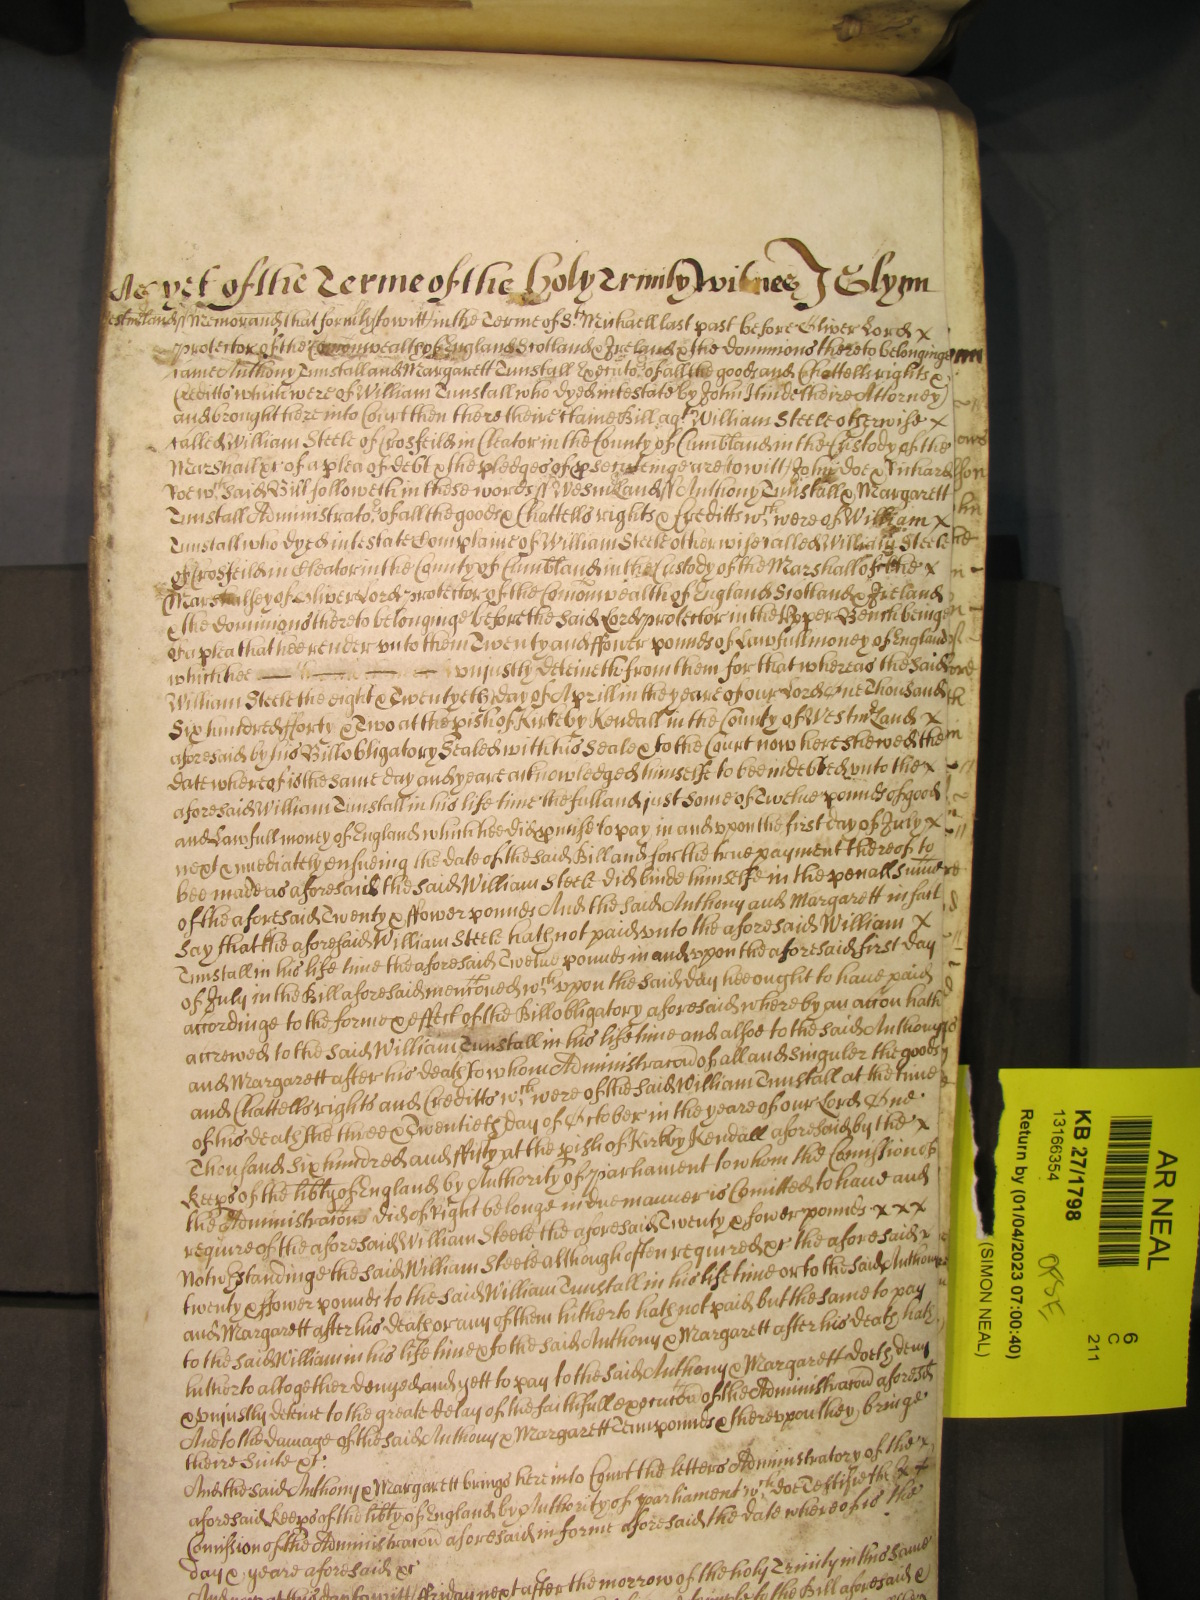 As yet of the Terme of the holy Trinity witnes J Glynn
Westmland ss Memorand that formly towitt in the Terme of St Michaell last past before Oliver Lord x
protector of the Comonwealth of England Scotland & Ireland & the dominions thereto belonginge
came Anthony Tunstall and Margarett Tunstall Executo of all the goods and Chattells rights &
Creditts which were of William Tunstall who dyed intestate by John Hinde theire Attorney
and brought here into Court then there theire Certaine Bill agt William Steele otherwise x
called William Steele of Crosfeild in Cleator in the County of Cumbland in the Custody of the
Marshall &c of a plea of debt & the pledges of psecuteinge are to witt John doe & Richard
roe wch said Bill followeth in these words ss Westmland ss Anthony Tunstall & Margarett
Tunstall Administrato of all the goods & Chattells rights & Creditts wch were of William x
Tunstall who dyed intestate Complaine of William Steele otherwise called William Steele
of Crosfeild in Cleator in the County of Cumbland in the Custody of the Marshall of the x
Marshalsey of Oliver Lord protector of the Comonwealth of England Scotland & Ireland
& the dominions thereto belonginge before the said Lord protector in the Upper Bench beinge
of a plea that hee render unto them Twenty and ffower pounds of Lawfull money of England
which hee unjustly deteineth from them for that whereas the said
William Steele the eight & Twentyeth day of Aprill in the yeare of our Lord One Thousand
Six hundred fforty & Two at the pish of Kirkby Kendall in the County of Westmland x
aforesaid by his Bill obligatory Sealed with his Seale & to the Court now here shewed the
date whereof is the same day and yeare acknowledged himselfe to bee indebted unto the x
aforesaid William Tunstall in his life time the full and just some of Twelve pounds of good
and Lawfull money of England which hee did pmise to pay in and upon the first day of July x
next imediately ensueing the date of the said Bill and for the true payment thereof to
bee made as aforesaid the said William Steele did binde himselfe in the penall summe
of the aforesaid Twenty & ffower pounds And the said Anthony and Margarett in fact
say that the aforesaid William Steele hath not paid unto the aforesaid William x
Tunstall in his life time the aforesaid Twelve pounds in and upon the aforesaid first day
of July in the Bill aforesaid mentoned wch upon the said day hee ought to have paid
accordinge to the forme & effect of the Bill obligatory aforesaid whereby an accon hath
accrewed to the said William Tunstall in his life time and alsoe to the said Anthony
and Margarett after his death to whom Administracon of all and singuler the goods
and Chattells rights and Creditts wch were of the said William Tunstall at the time
of his death the three & Twentieth day of October in the yeare of our Lord One
Thousand Six hundred and ffifty at the pish of Kirkby Kendall aforesaid by the x
Keeps of the libty of England by Authority of parliament to whom the Comission of
the Administracons did of right belonge in due manner is Comitted to have and
require of the aforesaid William Steele the aforesaid Twenty & fower pounds x x x
Notwthstandinge the said William Steele although often required &c the aforesaid x
twenty & ffower pounds to the said William Tunstall in his life time or to the said Anthony
and Margarett after his death or any of them hitherto hath not paid but the same to pay
to the said William in his life time & to the said Anthony & Margarett after his death hath
hitherto altogether denyed and yett to pay to the said Anthony & Margarett doeth deny
& unjustly deteine to the great delay of the faithfull execucon of the Administracon aforesd
And to the damage of the said Anthony & Margarett Tenn pounds & thereupon they bringe
theire suite &c
And the said Anthony & Margarett brings here into Court the letters Administratory of the x
aforesaid Keeps of the libty of England by Authority of parliament wch doe Testifie the
Comission of the Administracon aforesaid in forme aforesaid the date whereof is the
day & yeare aforesaid &c
And now at this day to witt ffriday next after the morrow of the holy Trinity in this same
AR NEAL
KB 27/1798
13166354
Return by (01/04/2023 07:00:40)
(SIMON NEAL)
6
C
211